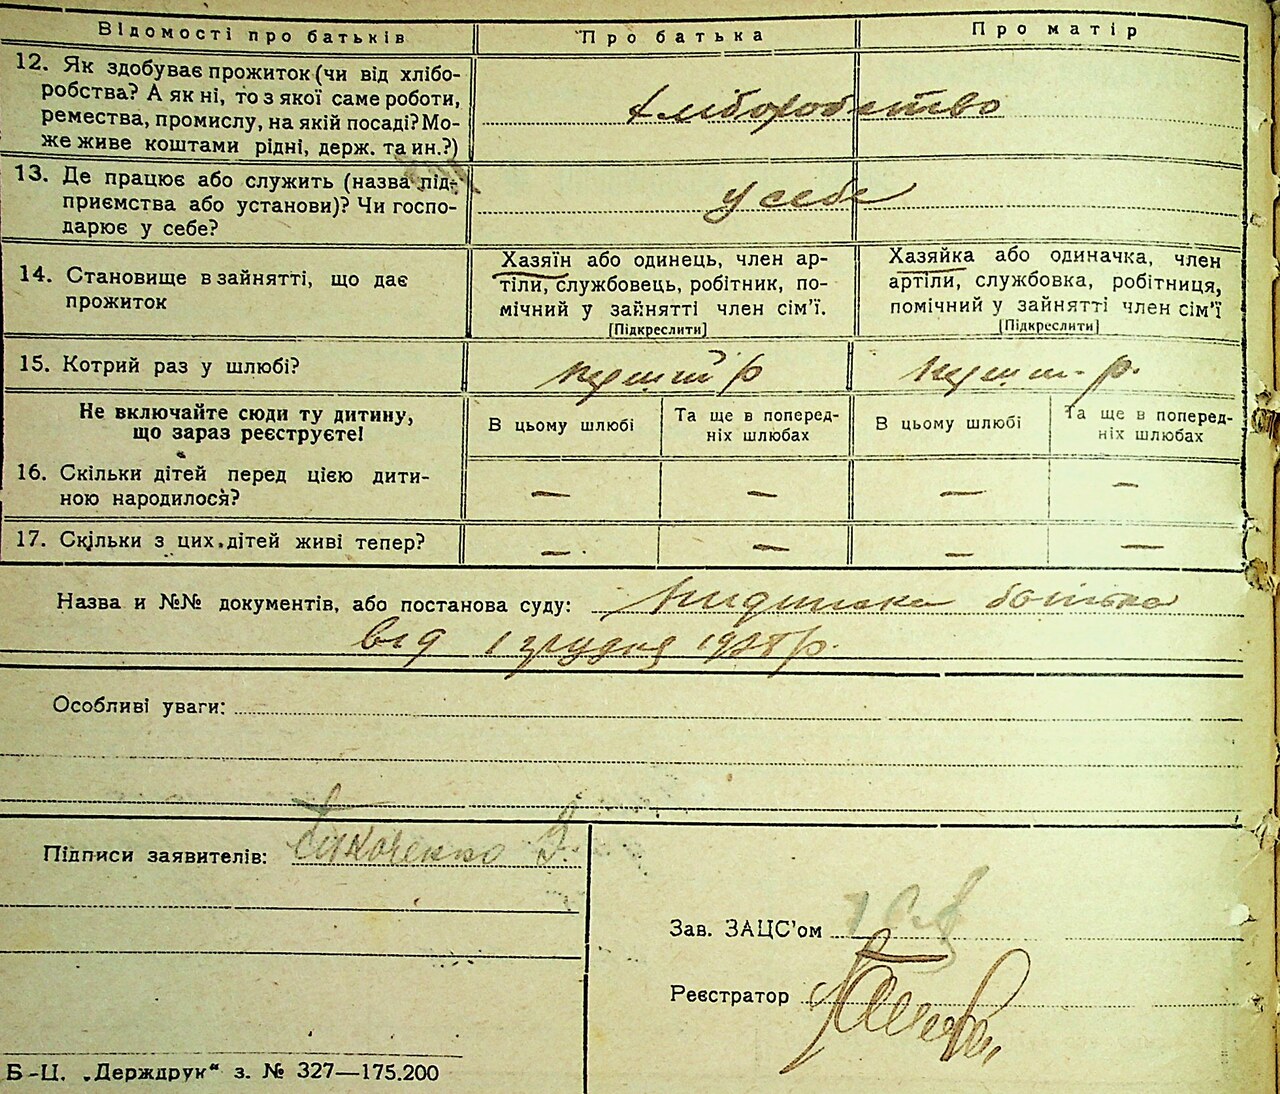 Відомості про батьків
Про батька
Про матір
12. Як здобуває прожиток (чи від хлібо-
робства? А як ні, то з якої саме роботи,
ремества, промислу, на якій посаді? Мо-
же живе коштами рідні, держ. та ин.?)
хліборобство
13. Де працює або служить (назва під-
приємства або установи)? Чи госпо-
дарює у себе?
у себе
14. Становище в зайнятті, що дає
прожиток
Хазяїн або одинець, член ар-
тіли, службовець, робітник, по-
мічний у зайнятті член сім'ї.
[Підкреслити]
Хазяйка або одиначка, член
артіли, службовка, робітниця,
помічний у зайнятті член сім'ї
[Підкреслити]
15. Котрий раз у шлюбі?
Не включайте сюди ту дитину,
що зараз реєструєте!
В цьому шлюбі
Та ще в поперед-
ніх шлюбах
В цьому шлюбі
Та ще в поперед-
ніх шлюбах
16. Скільки дітей перед цією дити-
ною народилося?
— — — —
17. Скільки з цих дітей живі тепер?
— — — —
Назва и №№ документів, або постанова суду:
від 1 грудня 1928 р.
Особливі уваги:
Підписи заявителів:
Зав. ЗАЦС'ом
Реєстратор
Б-Ц. „Держдрук“ з. № 327—175.200